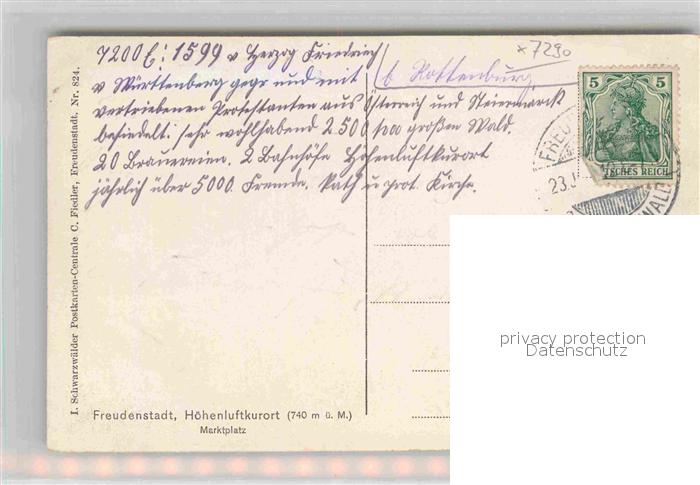 x7290
7200 E: 1599 v Herzog Friedrich
v Württemberg gegr und mit
b Rottenburg
vertriebenen Protestanten aus Österreich und Steiermarck
besiedelt. sehr wohlhabend 2500 großen Wald.
20 Brauereien. 2 Bahnhöfe Höhenluftkurort
jährlich über 5000 Fremde. Kath u prot. Kirche.
5 5
TSCHES REICH
FREU
23.
WALD
I. Schwarzwälder Postkarten-Centrale C. Fiedler, Freudenstadt. Nr. 824.
privacy protection
Datenschutz
Freudenstadt, Höhenluftkurort (740 m ü. M.)
Marktplatz